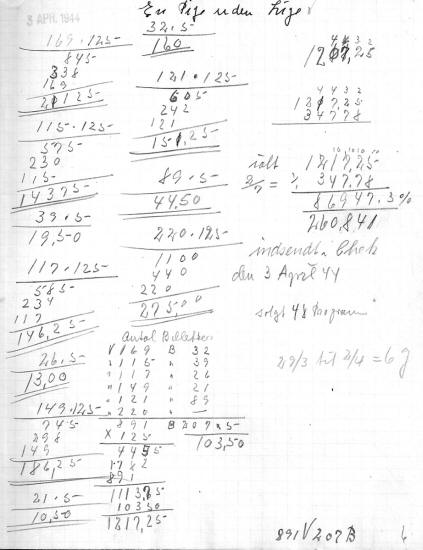 En Pige uden Lige
3 APR. 1944
169 . 125
845
338
169
21125
115 . 125
575
230
115
14375
39 . 5
19,50
117 . 125
585
234
117
146,25
26 . 5
13,00
149 . 125
745
298
149
186,25
21 . 5
10,50
32 . 5
160
121 . 125
605
242
121
151,25
89 . 5
44,50
220 . 125
1100
440
220
27500
Antal Billetter
V 169 B 32
" 115 " 39
" 117 " 26
" 149 " 21
" 121 " 89
" 220 " —
891 B 207 x 5
x 125 103,50
4455
1782
891
1113,75
103,50
1217,25
4432
1217,25
4432
1217,25
347,78
ialt 1217,25
347,78
86947 . 3%
260,841
indsendt Chek
den 3 April 44
solgt 48 Programm
29/3 til 3/4 = 6 g
891 V 207 B